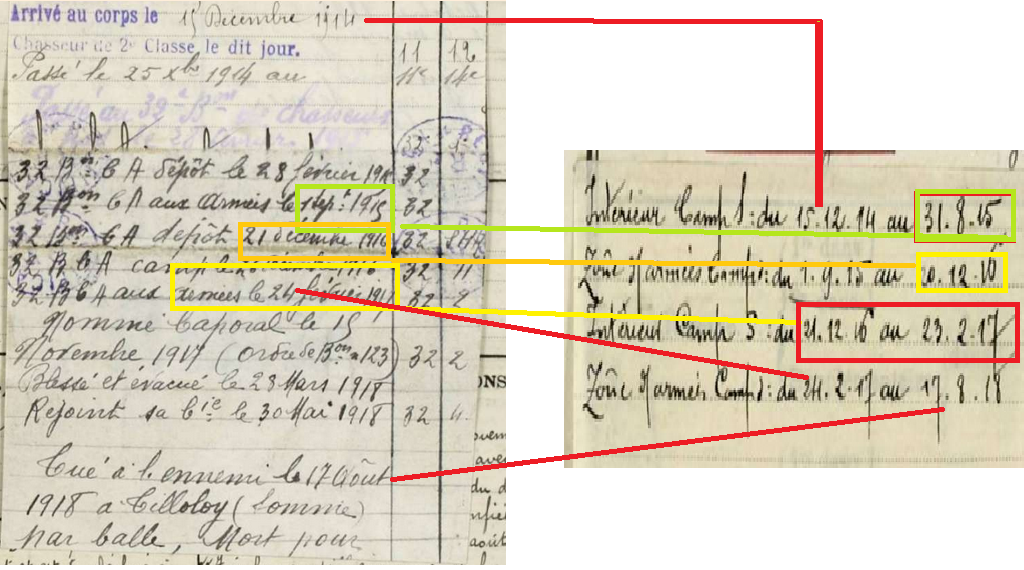 Arrivé au corps le 15 Décembre 1914
Chasseur de 2e Classe, le dit jour.
11 12
Passé le 25 Xbre 1914 au 11e 14e
Passé au 32e Bon de chasseurs
32 Bon CA dépôt le 28 février 191 32
32 Bon CA aux armées le 1 sept: 1915 32
32 Bon CA dépôt 21 décembre 1916 32
32 B CA camp le 1916 32 11
32 B CA aux armées le 24 février 191 32 2
Nommé Caporal le 15
Novembre 1917 (ordre de Bon n 123) 32 2
Blessé et évacué le 28 Mars 1918
Rejoint sa Cie le 30 Mai 1918 32 4
Tué à l'ennemi le 17 Août
1918 a Tilloloy (Somme)
par balle, Mort pour
ONS
Intérieur Camp S: du 15.12.14 au 31.8.15
Zône Armées Camp: du 1.9.15 au 20.12.16
Intérieur Camp S: du 21.12.16 au 23.2.17
Zône Armées Camp: du 24.2.17 au 17.8.18